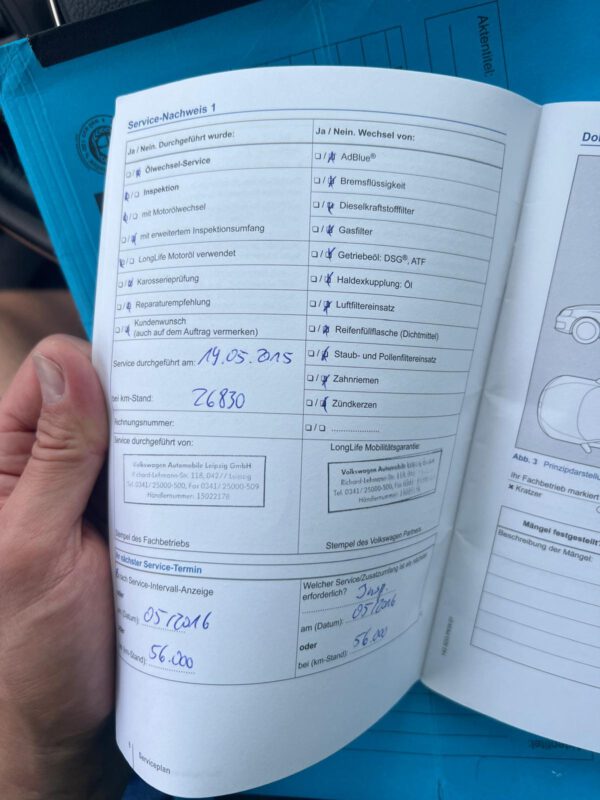 Aktentitel:
Service-Nachweis 1
Ja / Nein. Durchgeführt wurde:
Ölwechsel-Service
Inspektion
mit Motorölwechsel
mit erweitertem Inspektionsumfang
LongLife Motoröl verwendet
Karosserieprüfung
Reparaturempfehlung
Kundenwunsch
(auch auf dem Auftrag vermerken)
Service durchgeführt am: 19.05.2015
bei km-Stand: 26830
Rechnungsnummer:
Service durchgeführt von:
Volkswagen Automobile Leipzig GmbH
Richard-Lehmann-Str. 118, 04277 Leipzig
Tel. 0341/25000-500, Fax 0341/25000-509
Händlernummer: 15022178
Stempel des Fachbetriebs
Ja / Nein. Wechsel von:
AdBlue®
Bremsflüssigkeit
Dieselkraftstofffilter
Gasfilter
Getriebeöl: DSG®, ATF
Haldexkupplung: Öl
Luftfiltereinsatz
Reifenfüllflasche (Dichtmittel)
Staub- und Pollenfiltereinsatz
Zahnriemen
Zündkerzen
LongLife Mobilitätsgarantie:
Volkswagen Automobile Leipzig GmbH
Richard-Lehmann-Str. 118,
Tel. 0341/25000-500, Fax 0341
Händlernummer:
Stempel des Volkswagen Partners
nächster Service-Termin
nach Service-Intervall-Anzeige
oder
am (Datum): 05/2016
oder
km-Stand): 56.000
Welcher Service/Zusatzumfang ist am nächsten
erforderlich? Insp.
am (Datum): 05/2016
oder
bei (km-Stand): 56.000
Serviceplan
Abb. 3 Prinzipdarstellung
Ihr Fachbetrieb markiert
× Kratzer
Mängel festgestellt?
Beschreibung der Mängel: